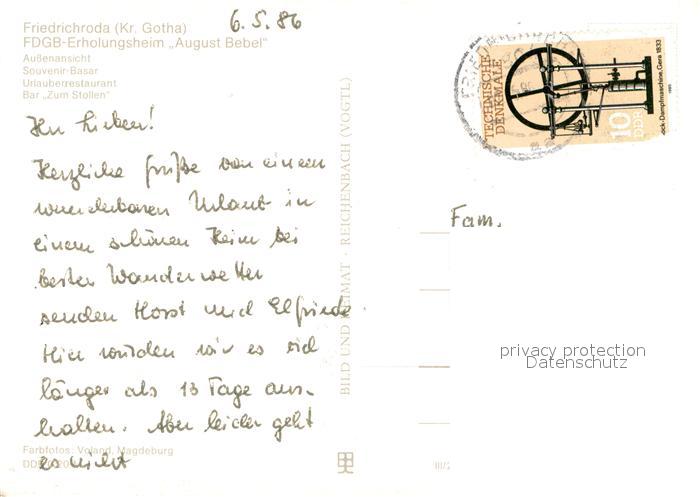 6.5.86
Friedrichroda (Kr. Gotha)
FDGB-Erholungsheim „August Bebel“
Außenansicht
Souvenir-Basar
Urlauberrestaurant
Bar „Zum Stollen“
Ihr Lieben!
Herzliche Grüße von einem
wunderbaren Urlaub in
einem schönen Heim bei
besten Wanderwetter
senden Horst und Elfriede.
Hier würden wir es viel
länger als 13 Tage aus-
halten. Aber leider geht
es nicht
Farbfotos: Voland, Magdeburg
BILD UND HEIMAT · REICHENBACH (VOGTL)
III/
TECHNISCHE
DENKMALE
10
DDR
ock-Dampfmaschine, Gera 1833
Fam.
privacy protection
Datenschutz